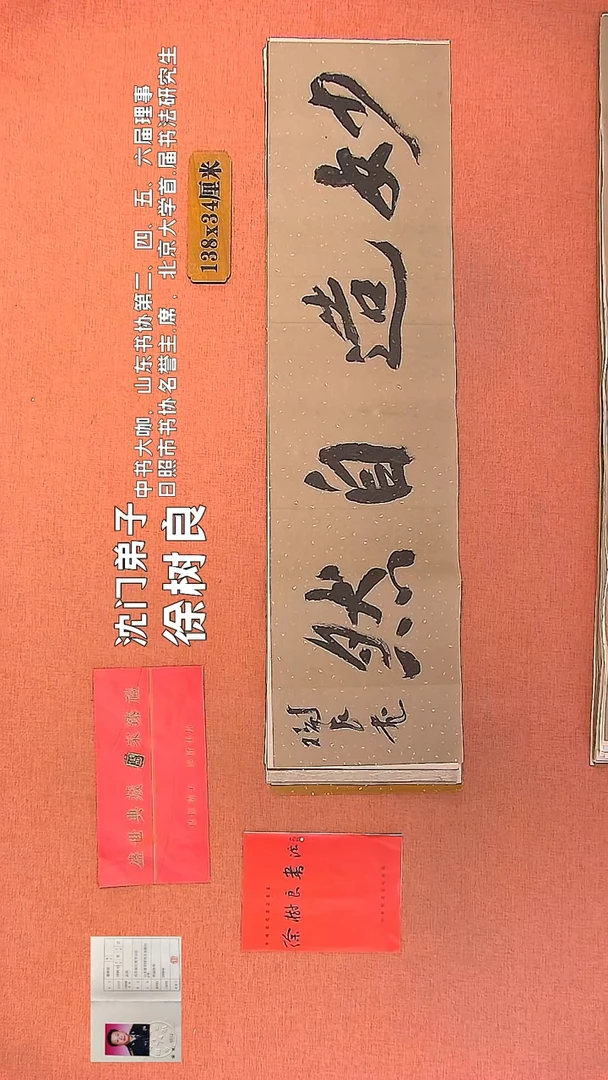 沈门弟子
徐树良
中书大咖，山东书协第二、四、五、六届理事
日照市书协名誉主席，北京大学首届书法研究生
138x34厘米
妙造自然
盛世典藏
徐樹良書法